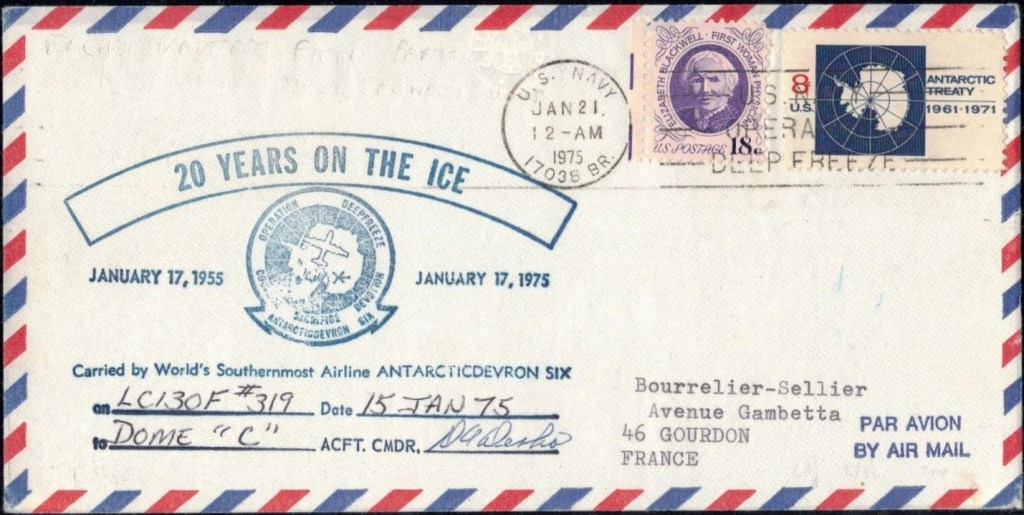 U.S. NAVY
JAN 21.
12-AM
1975
17038 BR.
ELIZABETH BLACKWELL · FIRST WOMAN PHYSICIAN
U.S. POSTAGE 18c
8
U.S.
ANTARCTIC
TREATY
1961-1971
DEEP FREEZE
20 YEARS ON THE ICE
OPERATION DEEPFREEZE
SACRIFICE DEVOTION
ANTARCTICDEVRON SIX
JANUARY 17, 1955
JANUARY 17, 1975
Carried by World's Southernmost Airline ANTARCTICDEVRON SIX
on LC130F #319 Date 15 JAN 75
to DOME "C" ACFT. CMDR,
Bourrelier-Sellier
Avenue Gambetta
46 GOURDON
FRANCE
PAR AVION
BY AIR MAIL